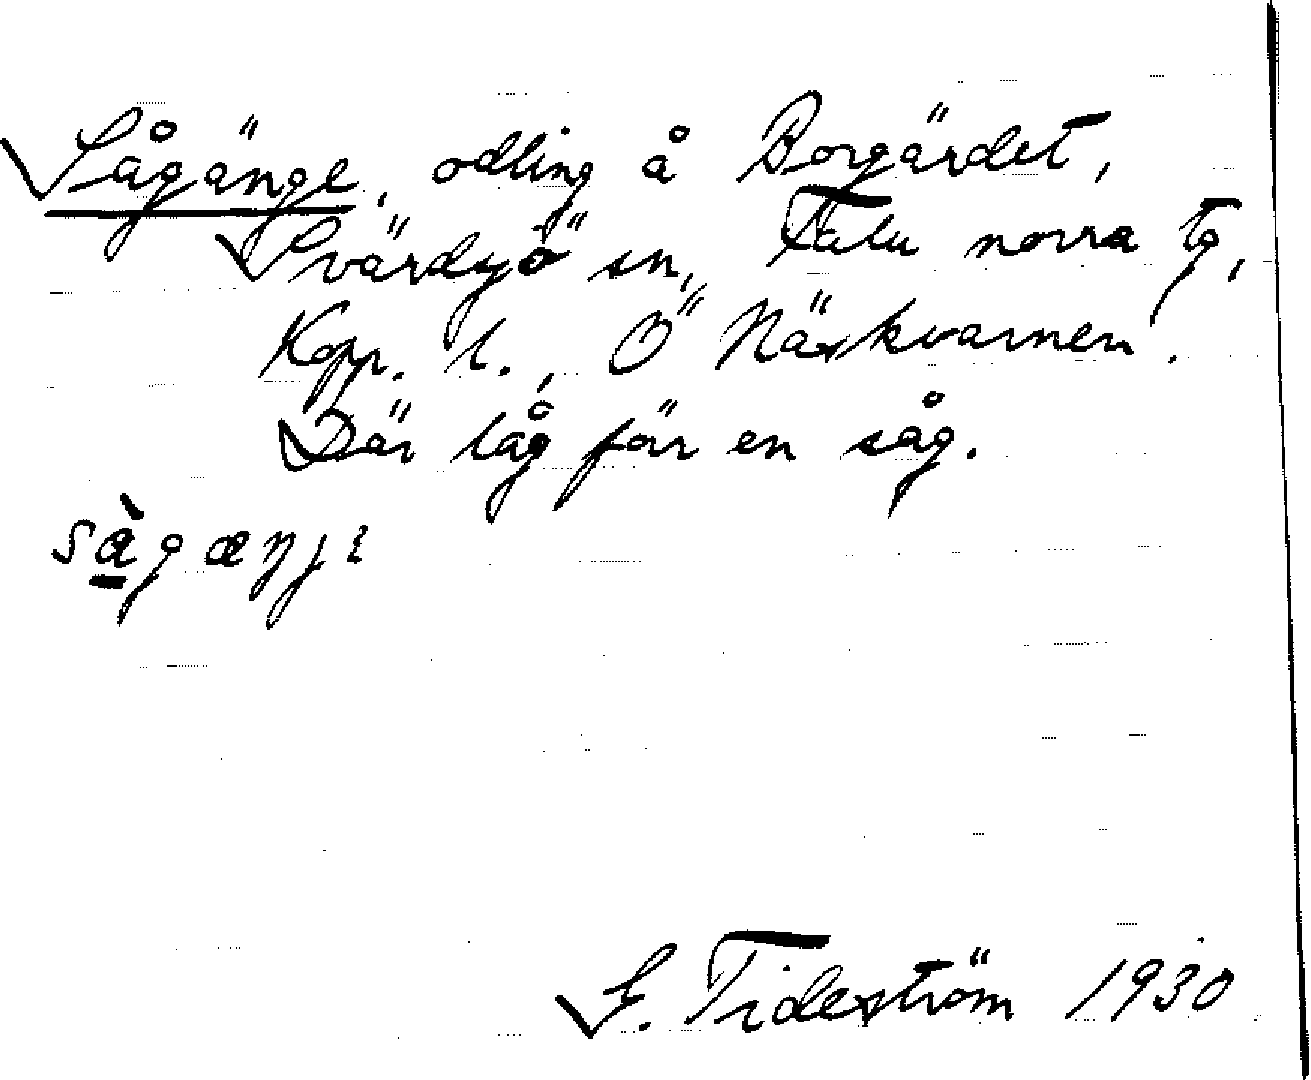 Sågänge, odling å Borgärdet,
Svärdsjö sn, Falu norra tg,
Kopp. l., Ö Näskvarnen.
Där låg förr en såg.
sàgæŋjɛ
S. Tideström 1930